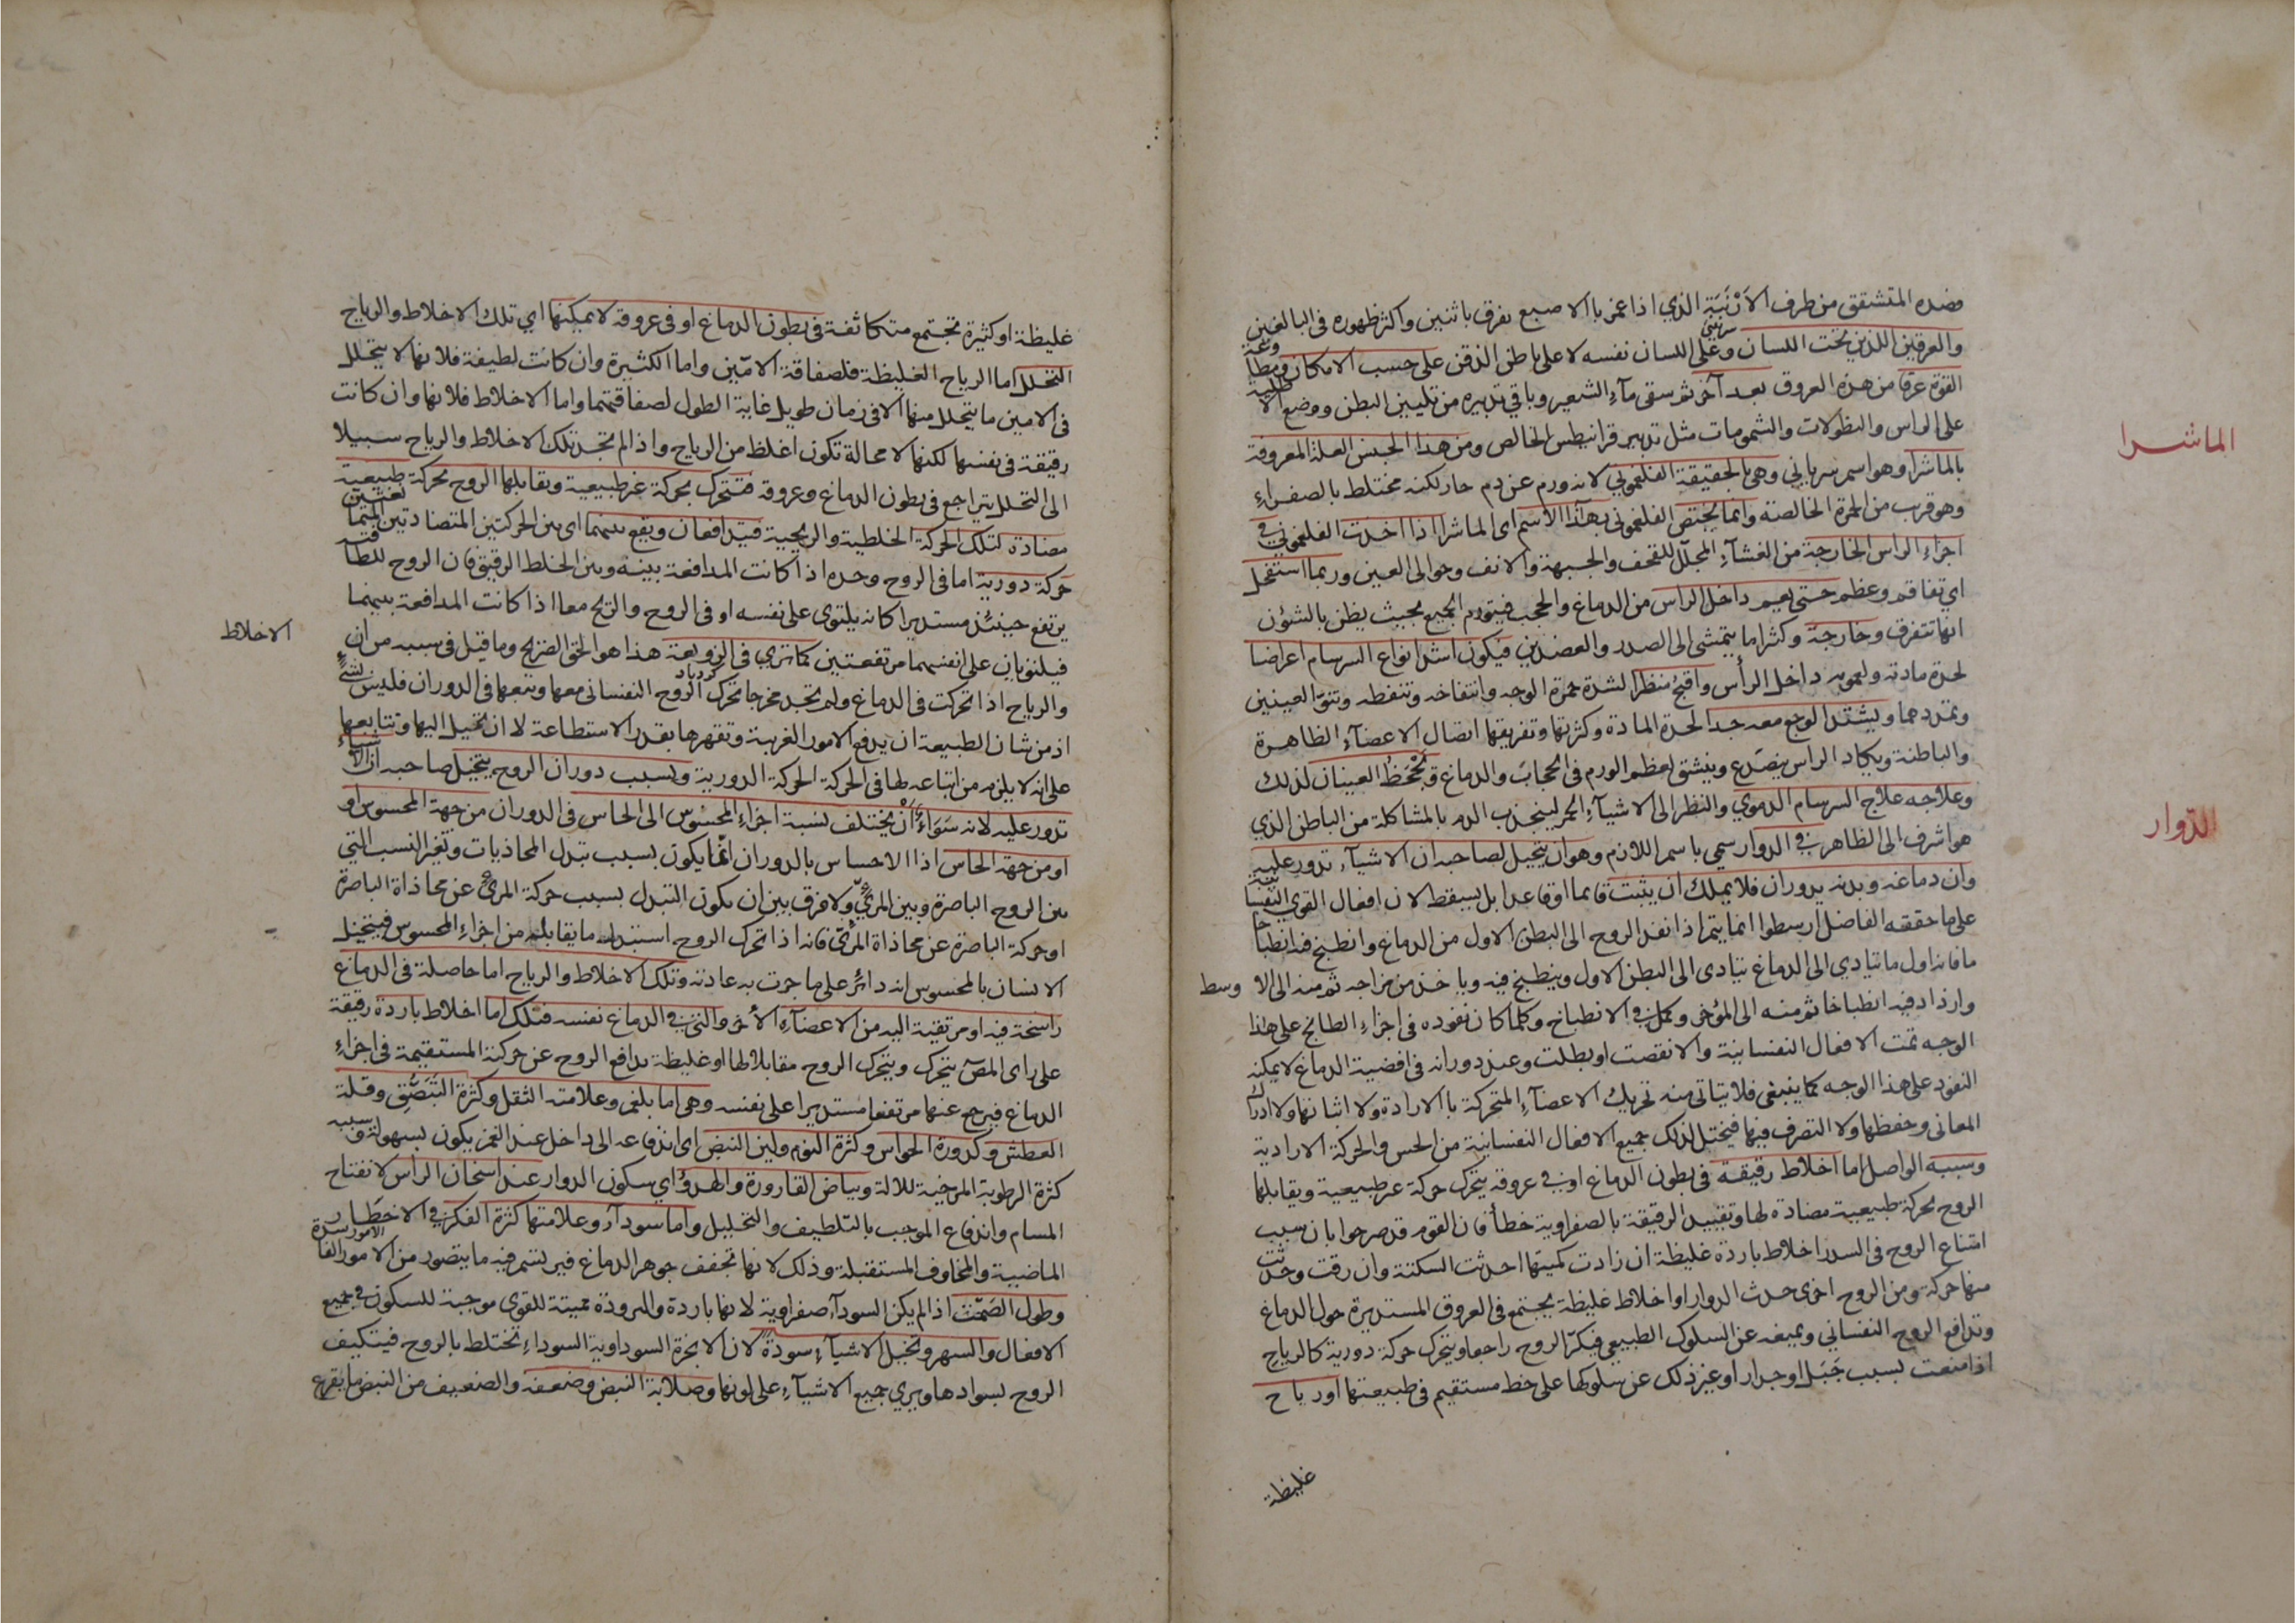 فصده المتشقق من طرف الأَرْنَبَة الذي اذا غمز بالاصبع يفرق باثنين واكثر ظهوره في البالغين
والعرقين اللذين تحت اللسان وعلى اللسان نفسه لا على باطن الذقن على حسب الامكان
القوة عرقا من هذه العروق بعد آخر ثم سقى مآء الشعير وباقي تدبيره من تليين البطن ووضع
على الراس والنطولات والشمومات مثل تدبير قرانيطس الخالص ومن هذا الجنس العلة المعروفة
بالماشرا وهو اسم سرياني وهي بالحقيقة الفلغموني لانه ورم عن دم حار لكنه مختلط بالصفراء
وهو قرب من الحمرة الخالصة وانما يختص الفلغموني بهذا الاسم اى الماشرا اذا اخذت الفلغموني في
اجزاء الراس الخارجة من الغشآء المجلّل للقحف والجبهة والانف وحوالى العين وربما استفحل
اي تفاقم وعظم حتى يعم داخل الراس من الدماغ والحجب فيتورم الجميع بحيث يظن بالشئون
انها تتفرق وخارجة وكثرا ما يتمشى الى الصدر والعضدين فيكون اشد انواع السرسام اعراضا
لحدة مادته ولعمومه داخل الرأس واقبح منظرا لشدة حمرة الوجه وانتفاخه وتنفطه ونتو العينين
وتمددهما ويشتد الوجع معه جدا لحدة المادة وكثرتها وتفريقها اتصال الاعضآء الظاهرة
والباطنة ويكاد الراس يتصدع وينشق لعظم الورم في الحجاب والدماغ وتَجْحَظُ العينان لذلك
وعلاجه علاج السرسام الدموي والنظر الى الاشيآء الحمر لينجذب الدم بالمشاكلة من الباطن الذي
هو اشرف الى الظاهر في الدوار سمي باسم اللازم وهو ان يتخيل لصاحبه ان الاشيآء تدور عليه
وان دماغه وبدنه يدوران فلا يملك ان يثبت قائما او قاعدا بل يسقط لان افعال القوى
على ما حققه الفاضل ارسطوا انما يتم اذا نفذ الروح الى البطن الاول من الدماغ وانطبخ فيه
ما فانه اول ما تتادي الى الدماغ يتادى الى البطن الاول وينطبخ فيه وياخذ من مزاجه ثم منه الى الا وسط
وازداد فيه انطباخا ثم منه الى المؤخر وكمل في الانطباخ وكلما كان نفوذه في اجزاء الطابخ على هذا
الوجه تمت الافعال النفسانية والا نقصت او بطلت وعند دورانه في افضية الدماغ لا يمكنه
النفوذ على هذا الوجه كما ينبغى فلا يتاتى منه تحريك الاعضآء المتحركة بالارادة ولا اثباتها ولا ادراك
المعاني وحفظها ولا التصرف فيها فيختل لذلك جميع الافعال النفسانية من الحس والحركة الارادية
وسببه الواصل اما اخلاط رقيقة في بطون الدماغ او في عروقه يتحرك حركة غير طبيعية ويقابلها
الروح بحركة طبيعية مضادة لها وتقييد الرقيقة بالصفراوية خطأ فان القوم قد صرحوا بان سبب
امتناع الروح في السدر اخلاط باردة غليظة ان زادت كميتها احدثت السكتة وان رقت وحدثت
منها حركة ومن الروح اخرى حدث الدوار او اخلاط غليظة يجتمع في العروق المستديرة حول الدماغ
وتدافع الروح النفساني وتمنعه عن السلوك الطبيعي فيكرّ الروح راجعا ويتحرك حركة دورية كالرياح
اذا منعت بسبب جَبَل او جدار او غير ذلك عن سلوكها على خط مستقيم في طبيعتها او رياح
غليظة
الماشرا
الدّوار
غليظة او كثيرة تجتمع متكاثفة في بطون الدماغ او في عروقه لا يمكنها اي تلك الاخلاط والرياح
التحلل اما الرياح الغليظة فلصفاقة الامّين واما الكثيرة وان كانت لطيفة فلانها لا يتحلل
في الامين ما يتحلل منها الا في زمان طويل غاية الطول لصفاقتهما واما الاخلاط فلانها وان كانت
رقيقة في نفسها لكنها لا محالة تكون اغلظ من الرياح واذا لم تجد تلك الاخلاط والرياح سبيلا
الى التحلل يتراجع في بطون الدماغ وعروقه فتتحرك بحركة غير طبيعية ويقابلها الروح بحركة طبيعية
مضادة لتلك الحركة الخلطية والريحية فيتدافعان ويقع بينهما اى بين الحركتين المتضادتين
حركة دورية اما في الروح وحده اذا كانت المدافعة بينه وبين الخلط الرقيق فان الروح للطافته
يرتفع حينئذ مستديرا كانه يلتوى على نفسه او في الروح والريح معا اذا كانت المدافعة بينهما
فيلتويان على انفسهما مرتفعتين كما ترى في الزوبعة هذا هو الحق الصريح وما قيل في سببه من ان الاخلاط
والرياح اذا تحركت في الدماغ ولم تجد مخرجا تحرك الروح النفسانى معها وتتبعها في الدوران فليس بشيء
اذ من شان الطبيعة ان يدفع الامور الغريبة وتقهرها بقدر الاستطاعة لا ان تخيل اليها وتتابعها
على انه لا يلزم من اتباعه لها في الحركة الحركة الدورية وبسبب دوران الروح يتخيل صاحبه ان الاشياء
تدور عليه لانه سَوَاءٌ أَنْ يختلف نسبة اجزاء المحسوس الى الحاس في الدوران من جهة المحسوس او
او من جهة الحاس اذا الاحساس بالدوران انّما يكون بسبب تبدل المحاذيات وتغير النسب التي
بين الروح الباصرة وبين المرئيّ ولا فرق بين ان يكون التبدل بسبب حركة المرئي عن محاذاة الباصرة
او حركة الباصرة عن محاذاة المرئّى فانه اذا تحرك الروح استبدل ما يقابله من اجزاء المحسوس فيتخيل
الانسان بالمحسوس انه دائر على ما جرت به عادته وتلك الاخلاط والرياح اما حاصلة في الدماغ
راسخة فيه او مرتقية اليه من الاعضآء الأخر والتي في الدماغ نفسه فتلك اما اخلاط باردة رقيقة
على راى المصّ يتحرك ويتحرك الروح مقابلا لها او غليظة يدافع الروح عن حركته المستقيمة في اجزاء
الدماغ فيرجع عنها مرتفعا مستديرا على نفسه وهي اما بلغم وعلامته الثقل وكثرة التَبَصُّق وقلة
العطش وكدورة الحواس وكثرة النوم ولين النبض اى اندفاعه الى داخل عند الغمز يكون بسهولة وسببه
كثرة الرطوبة المرخية للالة وبياض القارورة والهدوّ اي سكون الدوار عند اسخان الرأس لانفتاح
المسام واندفاع الموجب بالتلطيف والتحليل واما سودآء وعلامتها كثرة الفكر في الاخطار
الماضية والمخاوف المستقبلة وذلك لانها تجفف جوهر الدماغ فيرتسم فيه ما يتصور من الامور
وطول الصَمْت اذا لم يكن السودآء صفراوية لانها باردة والبرودة مميتة للقوى موجبة للسكون في جميع
الافعال والسهر وتخيل الاشيآء سودة لان الابخرة السوداوية السوداء تختلط بالروح فيتكيف
الروح بسوادها ويرى جميع الاشيآء على لونها وصلابة النبض وضعفه والضعيف من النبض ما يقرع